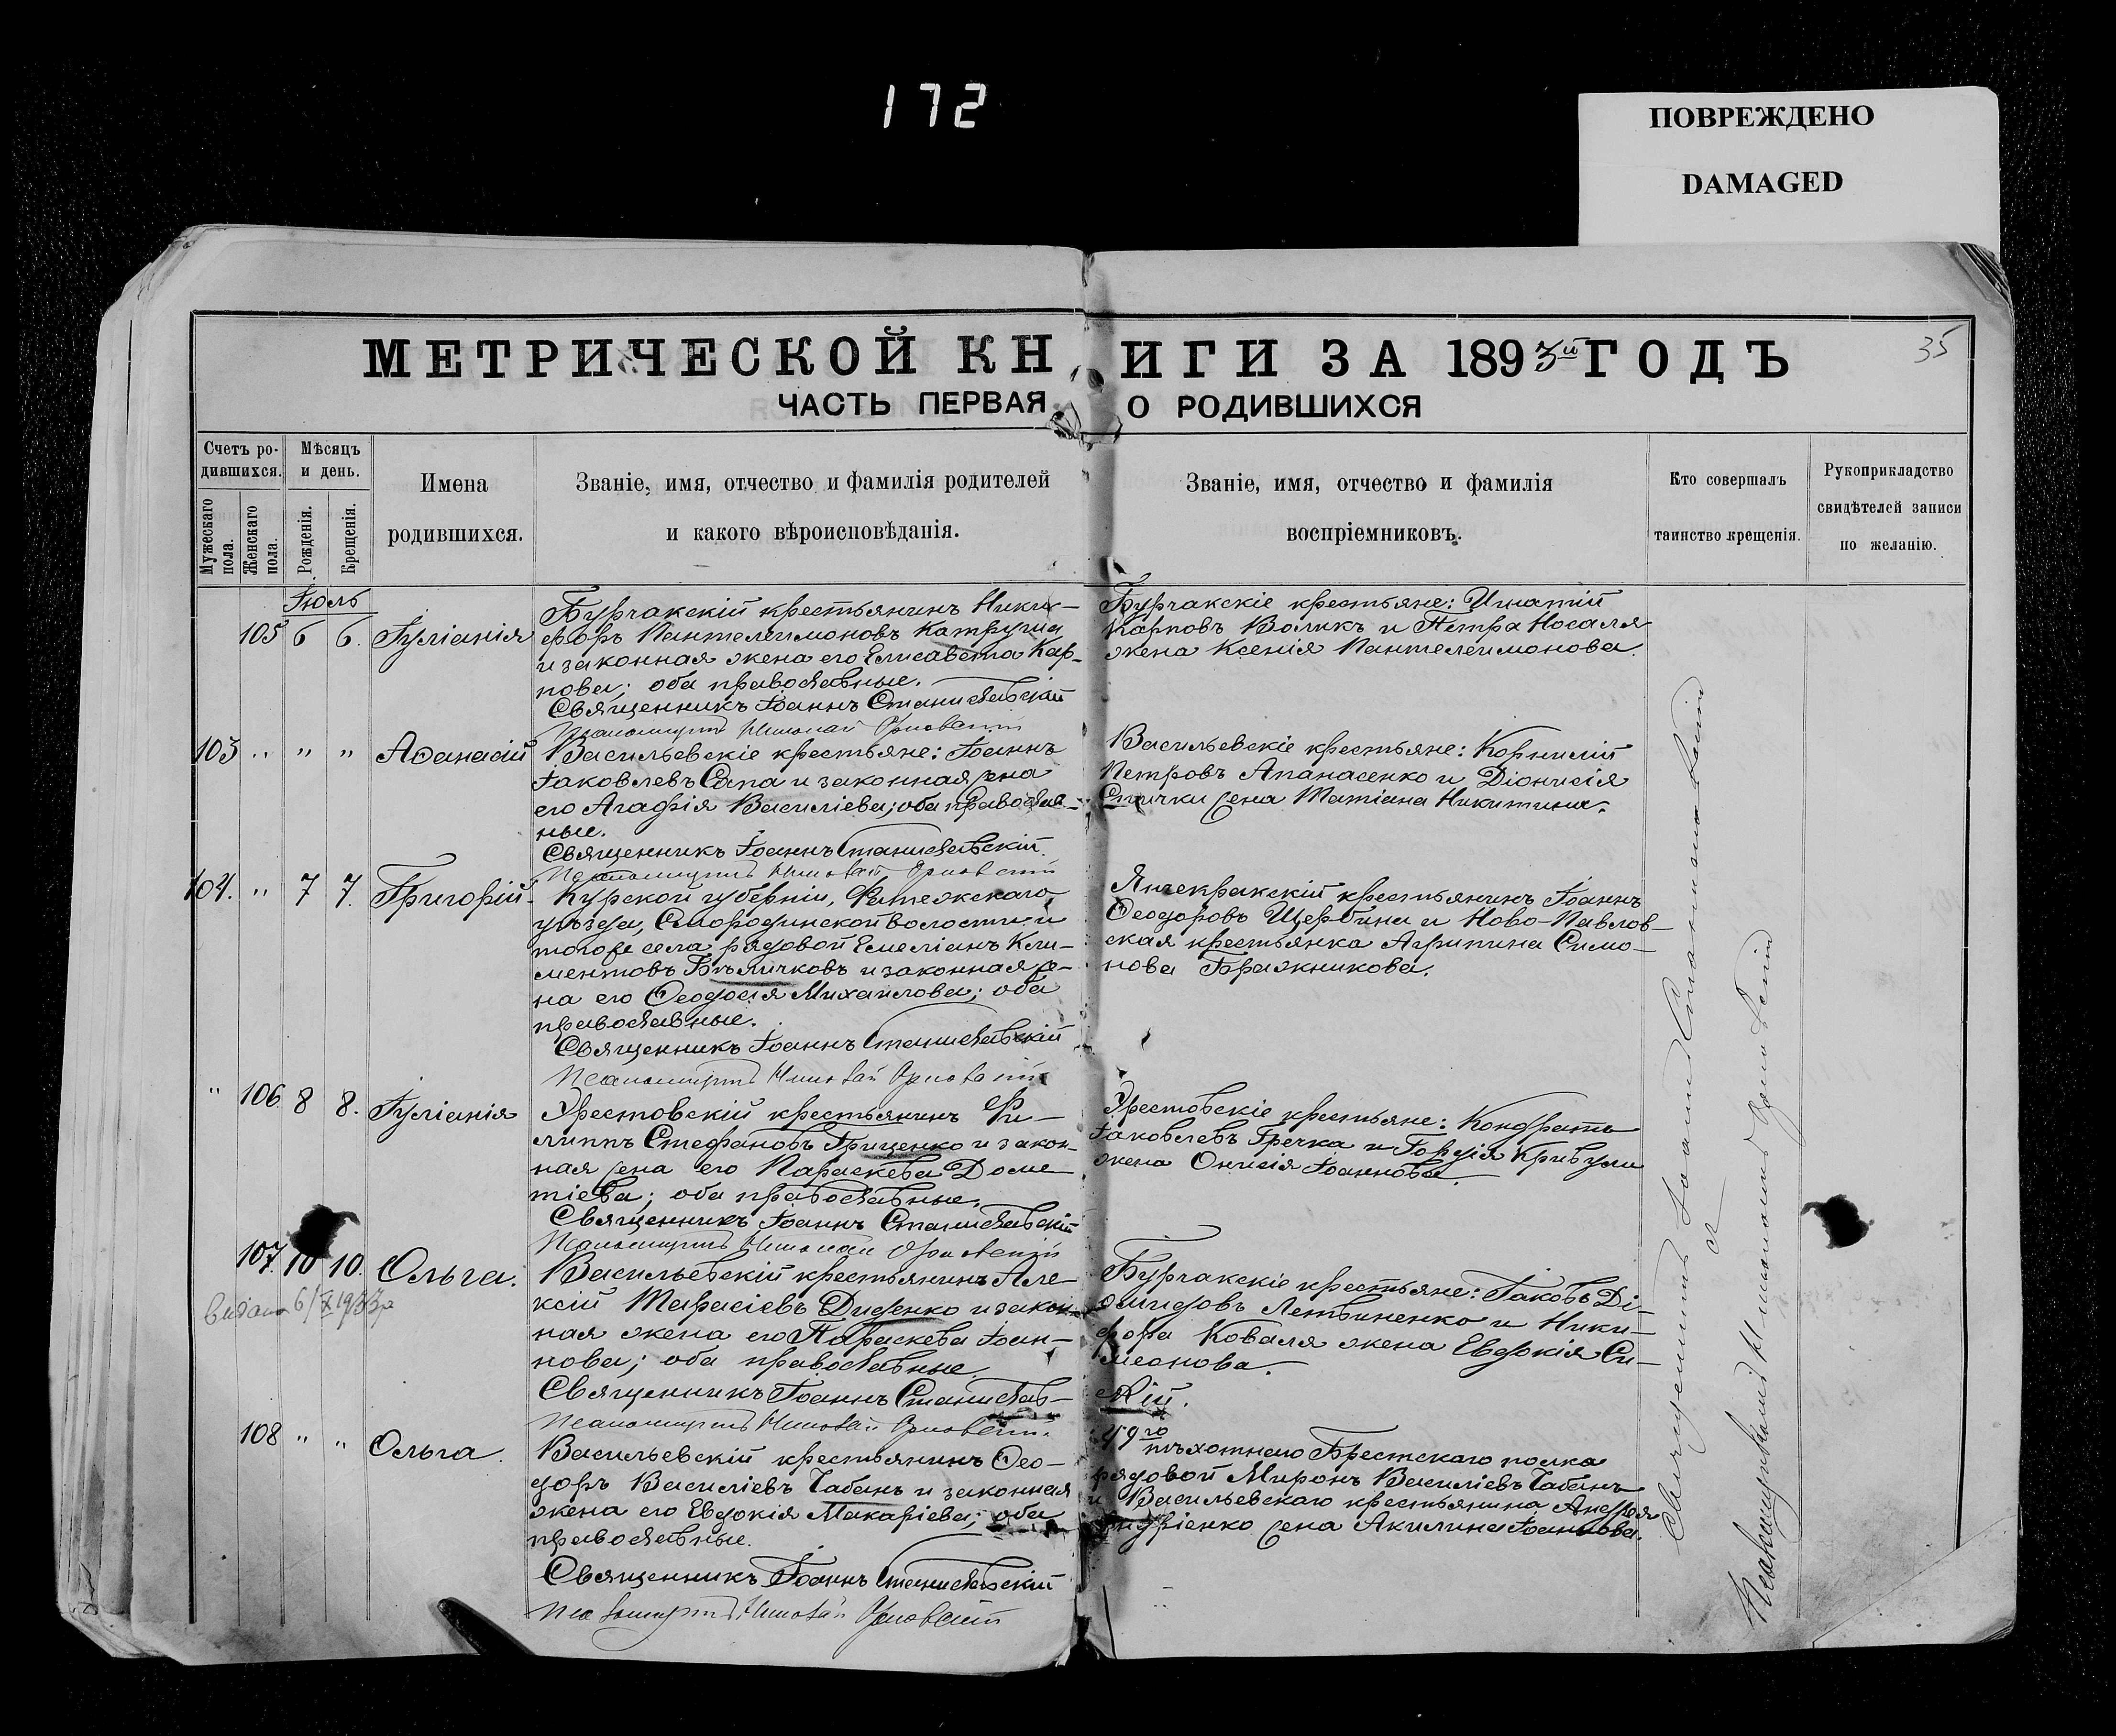 172
ПОВРЕЖДЕНО
DAMAGED
35
МЕТРИЧЕСКОЙ КНИГИ ЗА 1893й ГОДЪ
ЧАСТЬ ПЕРВАЯ О РОДИВШИХСЯ
Счетъ ро-
дившихся.
Мужескаго пола.
Женскаго пола.
Мѣсяцъ
и день.
Рожденія.
Крещенія.
Имена
родившихся.
Званіе, имя, отчество и фамилія родителей
и какого вѣроисповѣданія.
Званіе, имя, отчество и фамилія
воспріемниковъ.
Кто совершалъ
таинство крещенія.
Рукоприкладство
свидѣтелей записи
по желанію.
Іюль
105 6 6. Іуліанія
Бурчакскій крестьянинъ Ники-
форъ Пантелеимоновъ
и законная жена его Елисавета Кар-
пова; оба православные.
Священникъ Іоаннъ Станиславскій
Псаломщикъ Николай
Бурчакскіе крестьяне: Игнатій
Карповъ Воликъ и Петра Носаля
жена Ксенія Пантелеимонова.
103 " " " Аѳанасій
Васильевскіе крестьяне: Іоаннъ
Іаковлевъ Сапа и законная жена
его Агафія Василіева; оба православ-
ные.
Священникъ Іоаннъ Станиславскій.
Псаломщикъ Николай
Васильевскіе крестьяне: Корнилій
Петровъ Апанасенко и Діонисія
Спички жена Татіана Никитина.
104. " 7 7. Григорій
Курской губерніи, Фатежскаго
уѣзда, Смородинской волости и
тогоже села рядовой Емеліанъ Кли-
ментовъ Бѣличковъ и законная же-
на его Ѳеодосія Михаилова; оба
православные.
Священникъ Іоаннъ Станиславскій
Псаломщикъ Николай
Янчекракскій крестьянинъ Іоаннъ
Ѳеодоровъ Щербина и Ново-Павлов-
ская крестьянка Агрипина Симо-
нова Бражникова.
" 106 8 8. Іуліанія
крестьянинъ Фи-
липпъ Стефановъ Гриценко и закон-
ная жена его Параскева Доме-
тіева; оба православные.
Священникъ Іоаннъ Станиславскій
Псаломщикъ Николай
крестьяне: Кондратъ
Іаковлевъ Гречка и Гордія Кривули
жена Онисія Іоаннова.
107. 10 10. Ольга.
Васильевскій крестьянинъ Але-
ксій Тарасіевъ Диденко и закон-
ная жена его Параскева Іоан-
нова; оба православные.
Священникъ Іоаннъ Станислав-
скій.
Псаломщикъ Николай
Бурчакскіе крестьяне: Іаковъ Ді-
омидовъ Летвиненко и Ники-
фора Коваля жена Евдокія Си-
меонова.
108 " " Ольга.
Васильевскій крестьянинъ Ѳео-
доръ Василіевъ Чабанъ и законная
жена его Евдокія Макаріева; оба
православные.
Священникъ Іоаннъ Станиславскій
Псаломщикъ Николай
49го пѣхотнаго Брестскаго полка
рядовой Миронъ Василіевъ Чабанъ
и Васильевскаго крестьянина Андрея
Андріенко жена Акилина Іоаннова.
Священникъ Іоаннъ Станиславскій
Псаломщикъ Николай